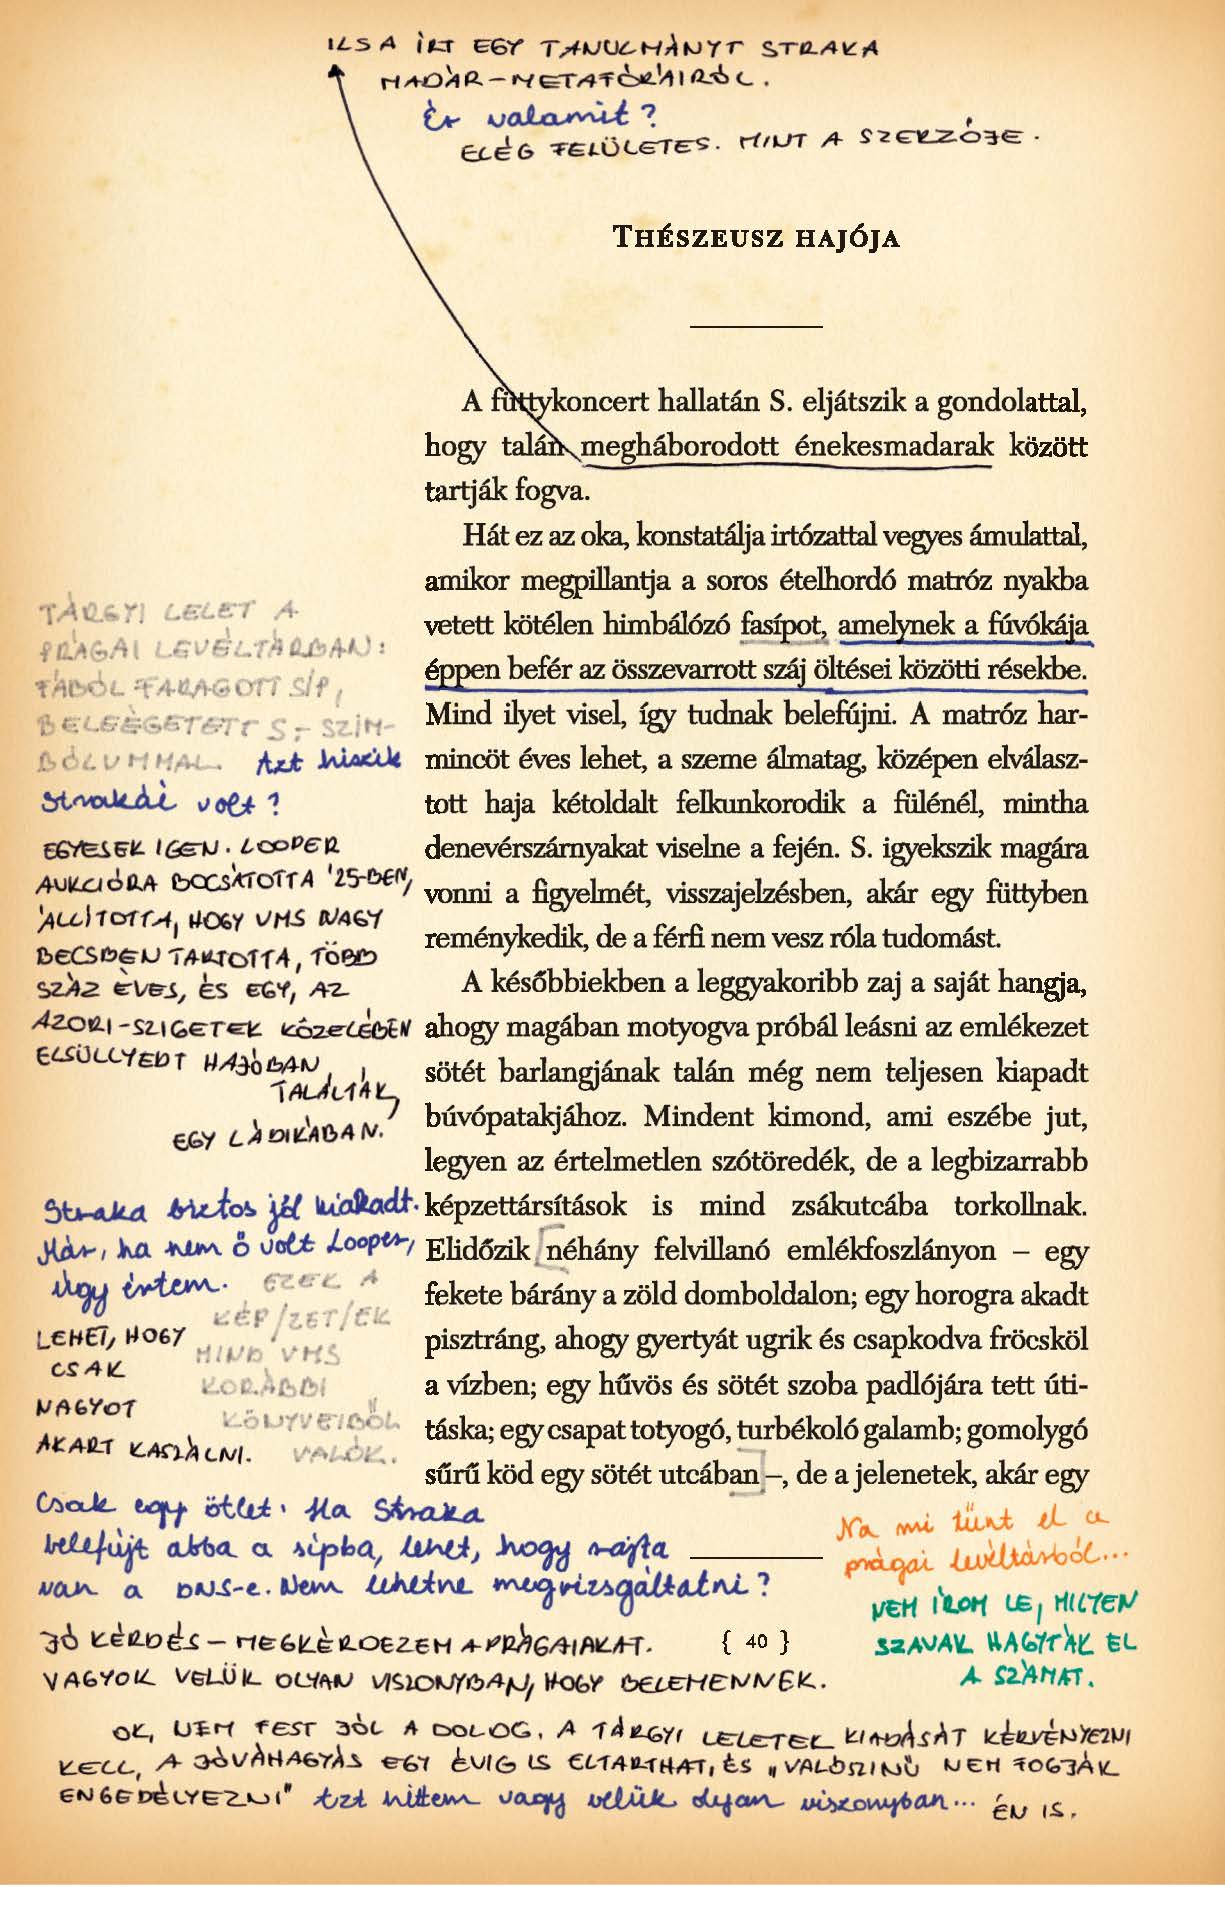 ILSA ÍRT EGY TANULMÁNYT STRAKA
MADÁR-METAFÓRÁIRÓL.
Ér valamit?
ELÉG FELÜLETES. MINT A SZERZŐJE.
THÉSZEUSZ HAJÓJA
A füttykoncert hallatán S. eljátszik a gondolattal,
hogy talán megháborodott énekesmadarak között
tartják fogva.
Hát ez az oka, konstatálja irtózattal vegyes ámulattal,
amikor megpillantja a soros ételhordó matróz nyakba
vetett kötélen himbálózó fasípot, amelynek a fúvókája
éppen befér az összevarrott száj öltései közötti résekbe.
Mind ilyet visel, így tudnak belefújni. A matróz har-
mincöt éves lehet, a szeme álmatag, középen elválasz-
tott haja kétoldalt felkunkorodik a fülénél, mintha
denevérszárnyakat viselne a fején. S. igyekszik magára
vonni a figyelmét, visszajelzésben, akár egy füttyben
reménykedik, de a férfi nem vesz róla tudomást.
A későbbiekben a leggyakoribb zaj a saját hangja,
ahogy magában motyogva próbál leásni az emlékezet
sötét barlangjának talán még nem teljesen kiapadt
búvópatakjához. Mindent kimond, ami eszébe jut,
legyen az értelmetlen szótöredék, de a legbizarrabb
képzettársítások is mind zsákutcába torkollnak.
Elidőzik néhány felvillanó emlékfoszlányon – egy
fekete bárány a zöld domboldalon; egy horogra akadt
pisztráng, ahogy gyertyát ugrik és csapkodva fröcsköl
a vízben; egy hűvös és sötét szoba padlójára tett úti-
táska; egy csapat totyogó, turbékoló galamb; gomolygó
sűrű köd egy sötét utcában –, de a jelenetek, akár egy
TÁRGYI LELET A
PRÁGAI LEVÉLTÁRBAN:
FÁBÓL FARAGOTT SÍP,
BELEÉGETETT S-SZIM-
BÓLUMMAL. Azt hiszik
Strakáé volt?
EGYESEK IGEN. LOOPER
AUKCIÓRA BOCSÁTOTTA '25-BEN,
ÁLLÍTOTTA, HOGY VMS NAGY
BECSBEN TARTOTTA, TÖBB
SZÁZ ÉVES, ÉS EGY, AZ
AZORI-SZIGETEK KÖZELÉBEN
ELSÜLLYEDT HAJÓBAN
TALÁLTÁK,
EGY LÁDIKÁBAN.
Straka biztos jól kiakadt.
Már, ha nem ő volt Looper,
úgy értem.
EZEK A
KÉP/ZET/EK
MIND VMS
KORÁBBI
KÖNYVEIBŐL
VALÓK.
LEHET, HOGY
CSAK
NAGYOT
AKART KASZÁLNI.
Csak egy ötlet. Ha Straka
belefújt abba a sípba, lehet, hogy rajta
van a DNS-e. Nem lehetne megvizsgáltatni?
JÓ KÉRDÉS – MEGKÉRDEZEM A PRÁGAIAKAT.
VAGYOK VELÜK OLYAN VISZONYBAN, HOGY BELEMENNEK.
Na mi tűnt el a
prágai levéltárból...
NEM ÍROM LE, MILYEN
SZAVAK HAGYTÁK EL
A SZÁMAT.
{ 40 }
OK, NEM FEST JÓL A DOLOG. A TÁRGYI LELETEK KIADÁSÁT KÉRVÉNYEZNI
KELL, A JÓVÁHAGYÁS EGY ÉVIG IS ELTARTHAT, ÉS „VALÓSZINŰ NEM FOGJÁK
ENGEDÉLYEZNI" Azt hittem vagy velük olyan viszonyban... ÉN IS.